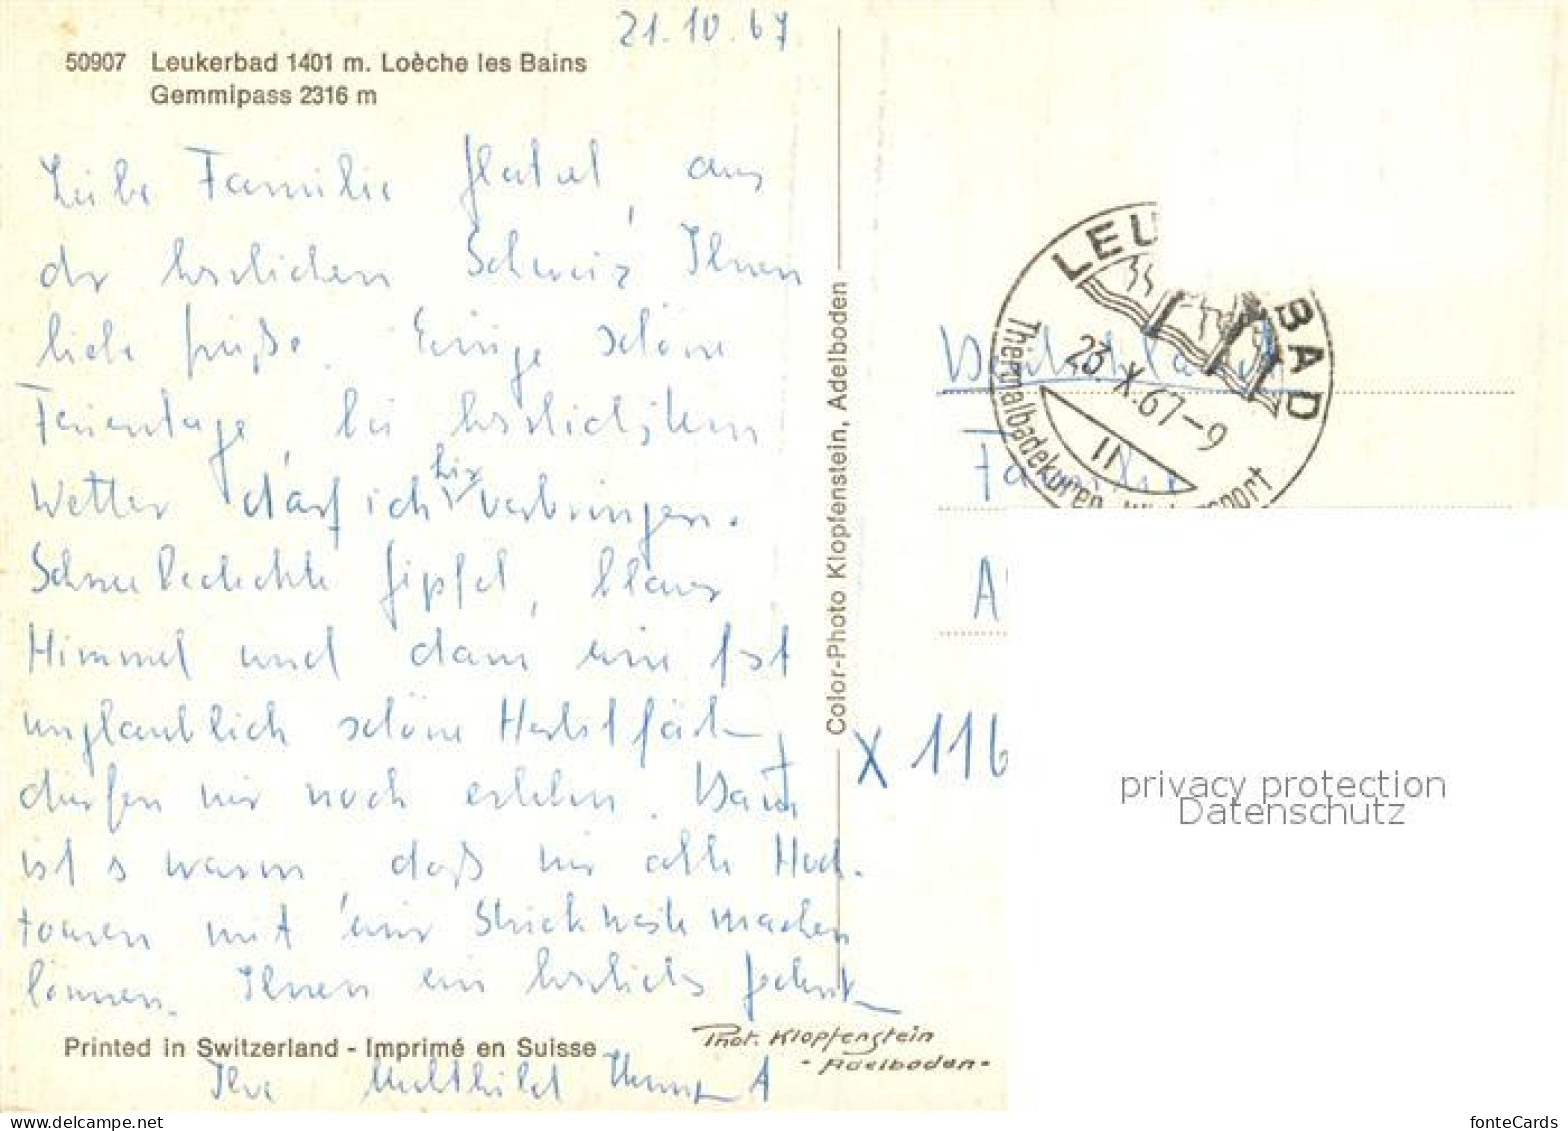 21.10.67
50907 Leukerbad 1401 m. Loèche les Bains
Gemmipass 2316 m
Liebe Familie, aus
der herrlichen Schweiz Ihnen
liebe Grüße. Einige schöne
Ferientage bei herrlichstem
Wetter darf ich hier verbringen.
Schneebedeckte Gipfel, blauer
Himmel und dann eine fast
unglaublich schöne Herbstfärb
dürfen wir noch erleben.
ist es warm daß wir alle Hoch-
touren mit einer Strickweste machen
können. Ihnen ein herzliches
Printed in Switzerland - Imprimé en Suisse
Ihre
Color-Photo Klopfenstein, Adelboden
Phot. Klopfenstein
- Adelboden -
LEU BAD
Thermalbadekuren
23.X.67-9
Deutschland
Familie
A
X 116
privacy protection
Datenschutz
fonteCards